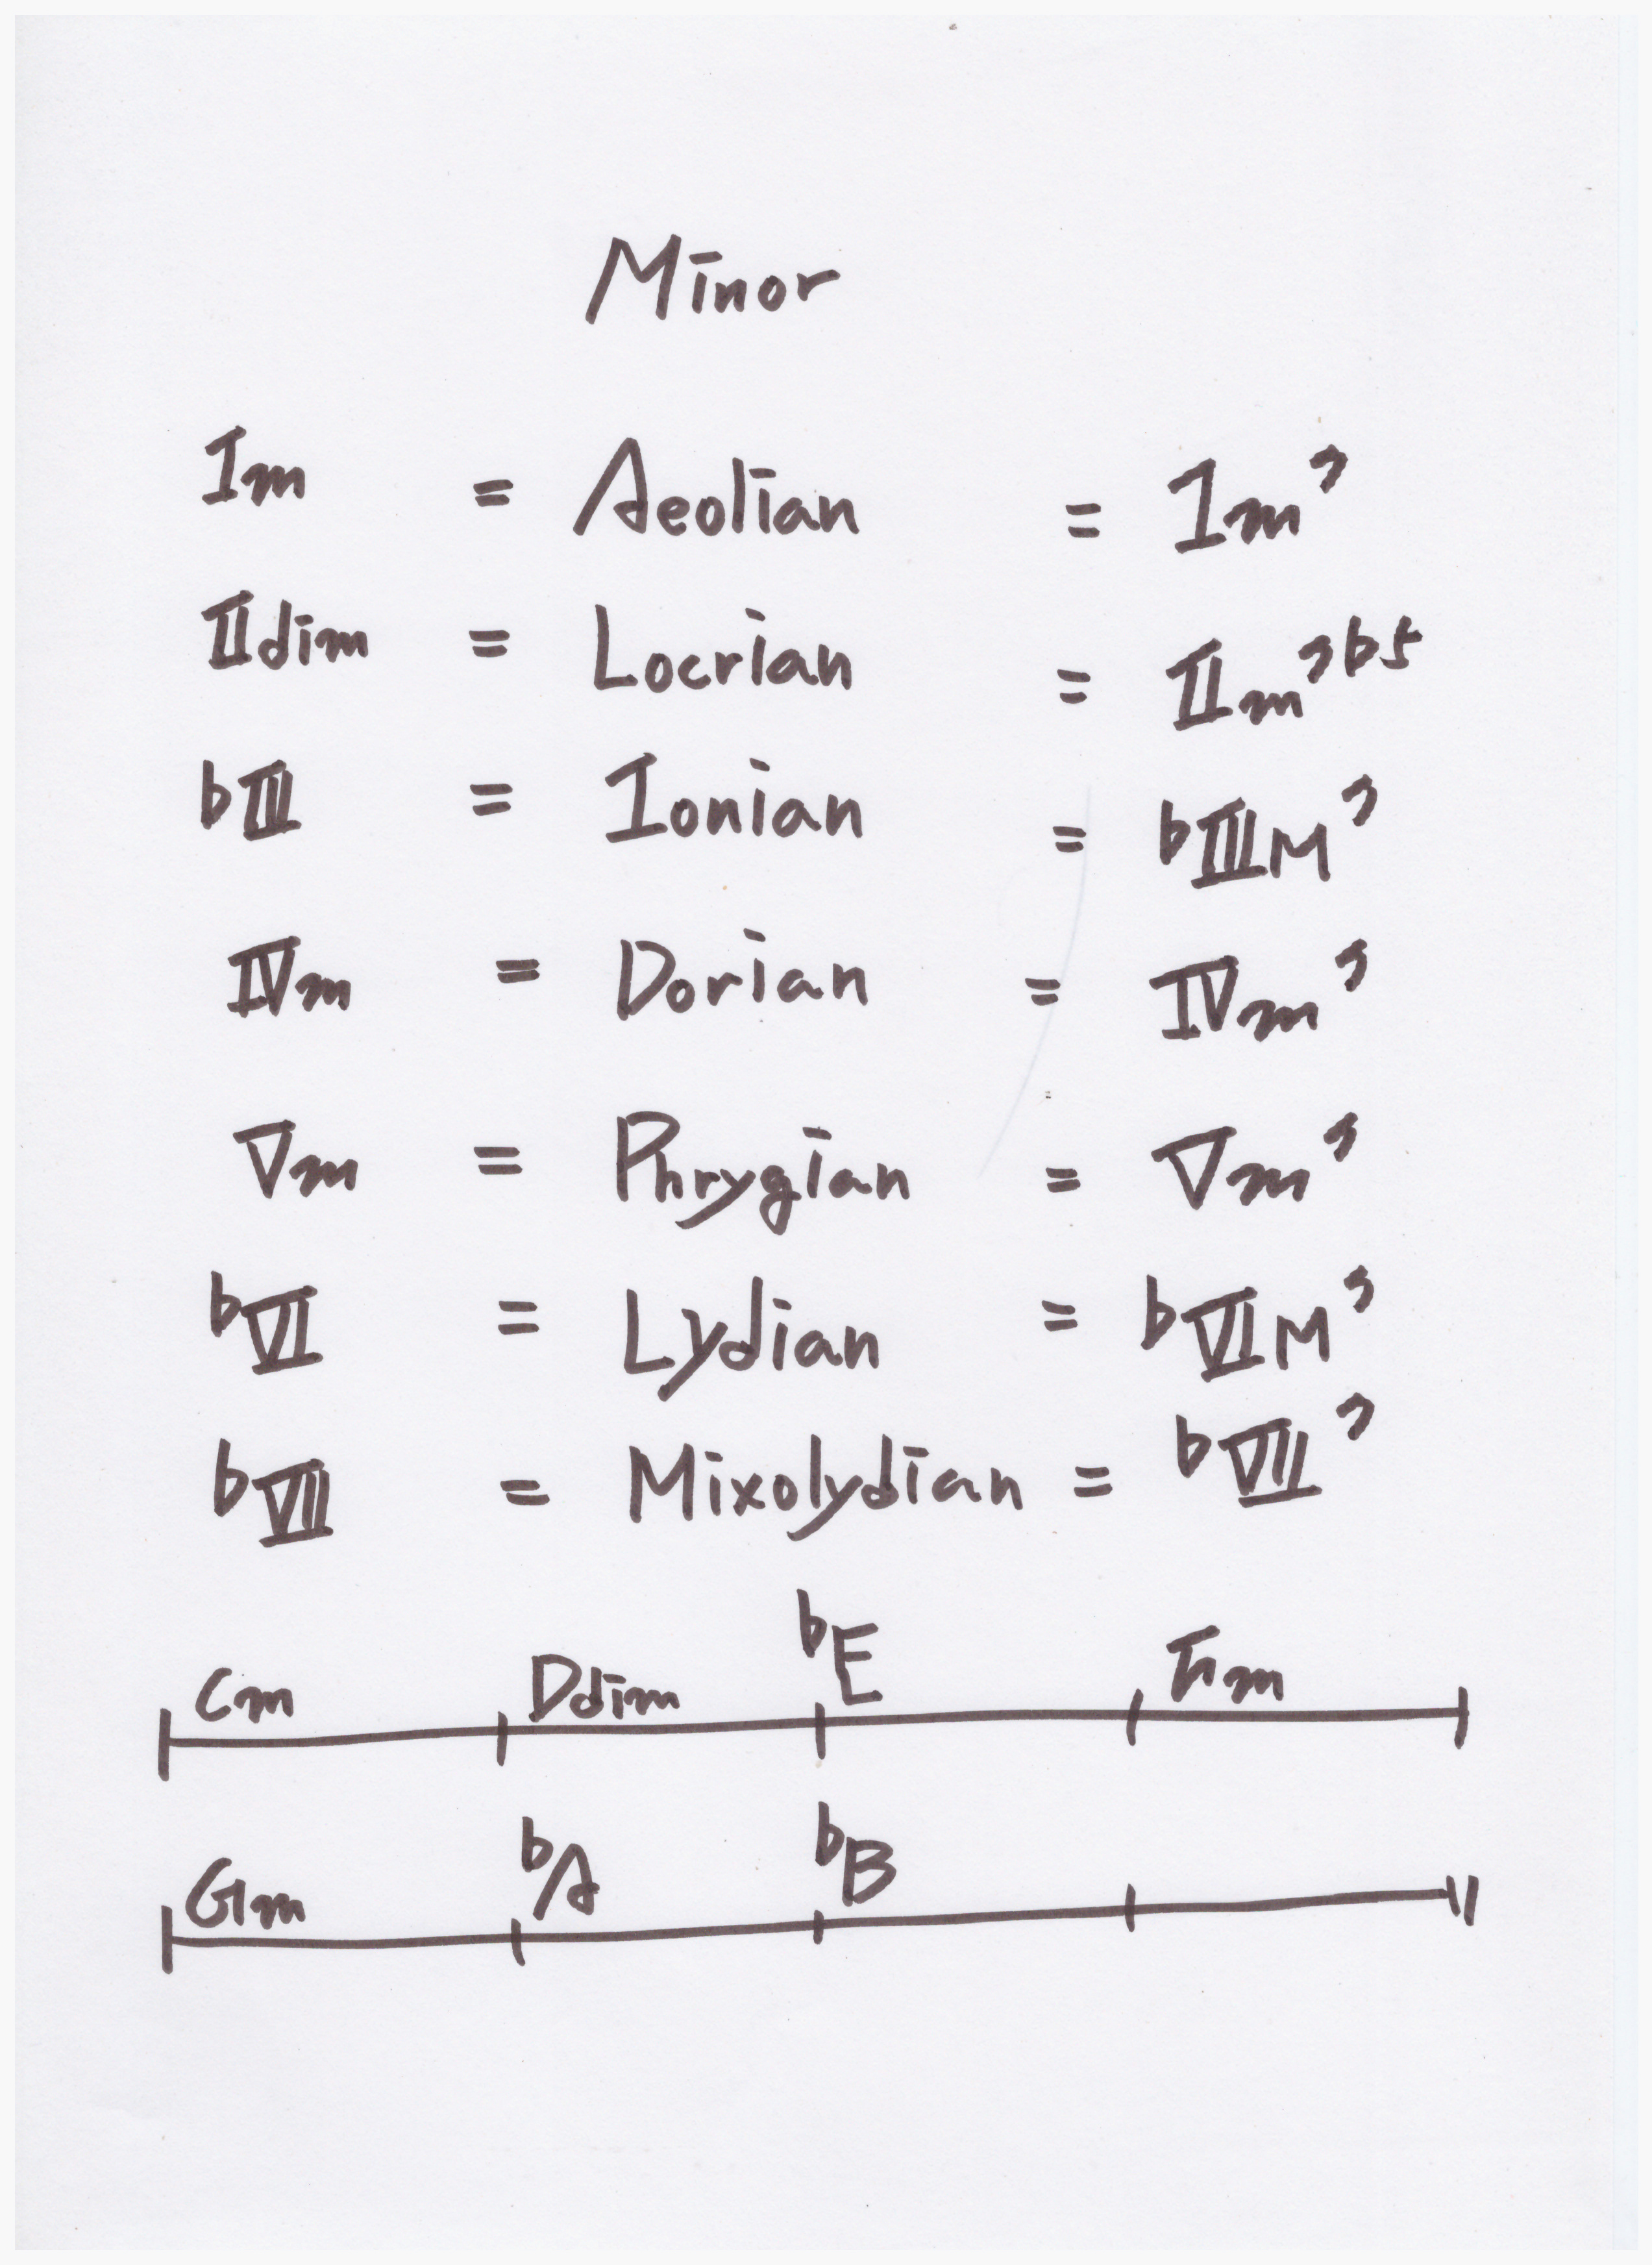 Minor
Im = Aeolian = Im7
IIdim = Locrian = IIm7b5
bIII = Ionian = bIIIM7
IVm = Dorian = IVm7
Vm = Phrygian = Vm7
bVI = Lydian = bVIM7
bVII = Mixolydian = bVII7
Cm Ddim bE Fm
Gm bA bB